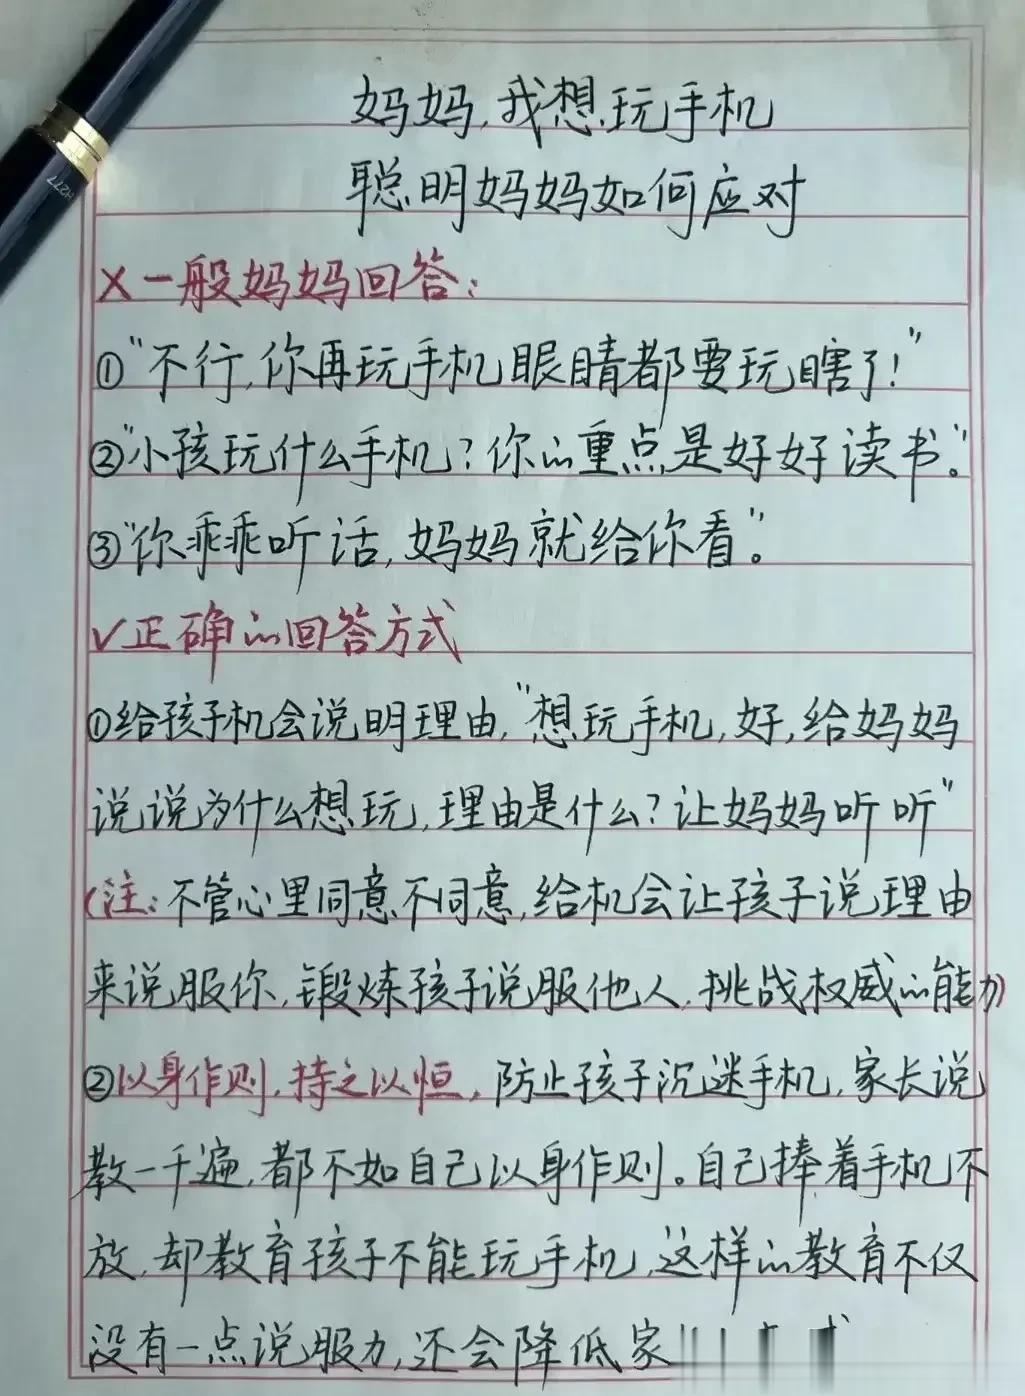 H277
妈妈,我想玩手机
聪明妈妈如何应对
×一般妈妈回答:
①"不行,你再玩手机眼睛都要玩瞎了!"
②"小孩玩什么手机?你的重点是好好读书。"
③"你乖乖听话,妈妈就给你看"。
√正确的回答方式
①给孩子机会说明理由,"想玩手机,好,给妈妈
说说为什么想玩,理由是什么?让妈妈听听"
(注:不管心里同意不同意,给机会让孩子说理由
来说服你,锻炼孩子说服他人,挑战权威的能力)
②以身作则,持之以恒,防止孩子沉迷手机,家长说
教一千遍,都不如自己以身作则。自己捧着手机不
放,却教育孩子不能玩手机,这样的教育不仅
没有一点说服力,还会降低家